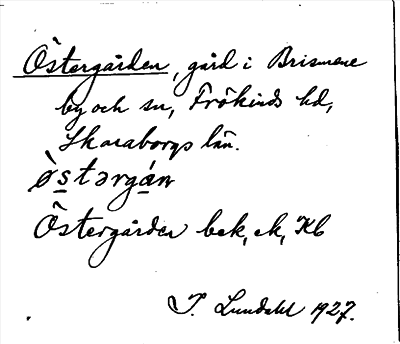 Östergården, gård i Brismene
by och sn, Frökinds hd,
Skaraborgs län.
östərgán
Östergården bek, ek, Kb
I. Lundahl 1927.